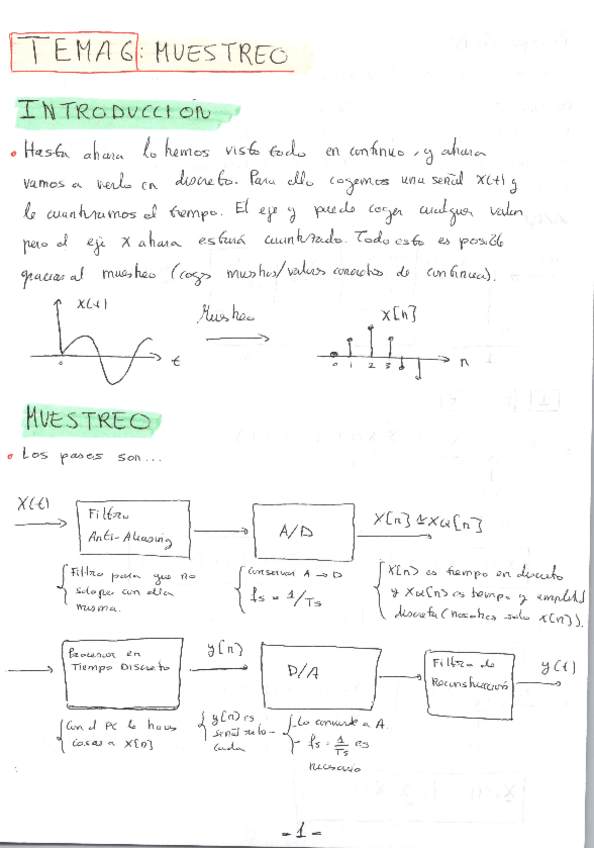 TEMA 6: MUESTREO
INTRODUCCIÓN
• Hasta ahora lo hemos visto todo en continuo, y ahora
vamos a verlo en discreto. Para ello cogemos una señal X(t) y
le cuantizamos el tiempo. El eje y puede coger cualquier valor
pero el eje X ahora estará cuantizado. Todo esto es posible
gracias al muestreo (cogo muestras/valores concretos de continua).
X(t)
Muestreo
X[n]
t
0 1 2 3
n
MUESTREO
• Los pasos son...
X(t)
Filtro
Anti-Aliasing
A/D
X[n] ≠ Xd[n]
Filtro para que no
solape con ella
misma.
Conversor A → D
fs = 1/Ts
X[n] es tiempo en discreto
y Xd[n] es tiempo y amplitud
discreta (nosotros solo X[n]).
Procesor en
Tiempo Discreto
y[n]
D/A
Filtro de
Reconstrucción
y(t)
Con el PC le haces
cosas a X[n]
y[n] es
señal reto-
cada
- Lo convierte a A.
- fs = 1/Ts es
necesario
- 1 -